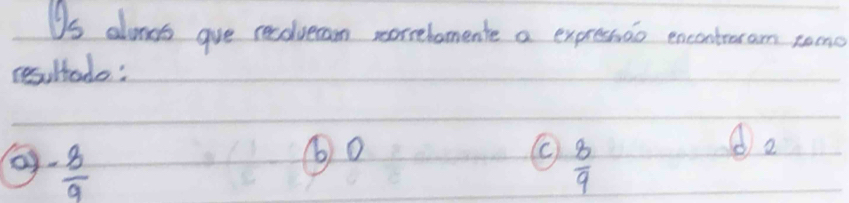 Os alunos que resolveram corretamente a expressão encontraram como
resultado:
a) - 8/9 b) 0 c) 8/9 d) 2